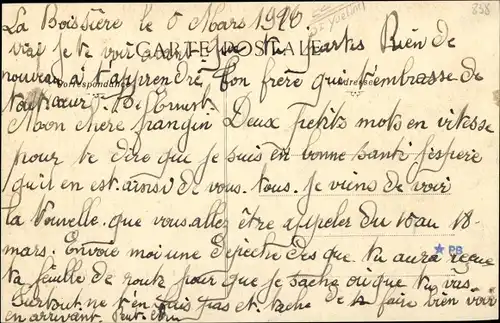 La Boissière le 6 Mars 1920
De Yvelines
838
vrai je te voir avant que tu partes Rien de
CARTE POSTALE
nouveau à t'apprendre Ton frère qui t'embrasse de
Correspondance
Adresse
tout cœur. Ernest
Mon chere frangin Deux petits mots en vitesse
pour te dire que je suis en bonne santé j'espere
qu'il en est ainsi de vous tous. Je viens de voir
la Nouvelle que vous allez être appeler du 10 au 18
mars. Envoie moi une depeche des que tu aura reçue
PB
ta feuille de route pour que je sache ou que tu vas.
Surtout ne t'en fais pas et tache de te faire bien voir
en arrivant.